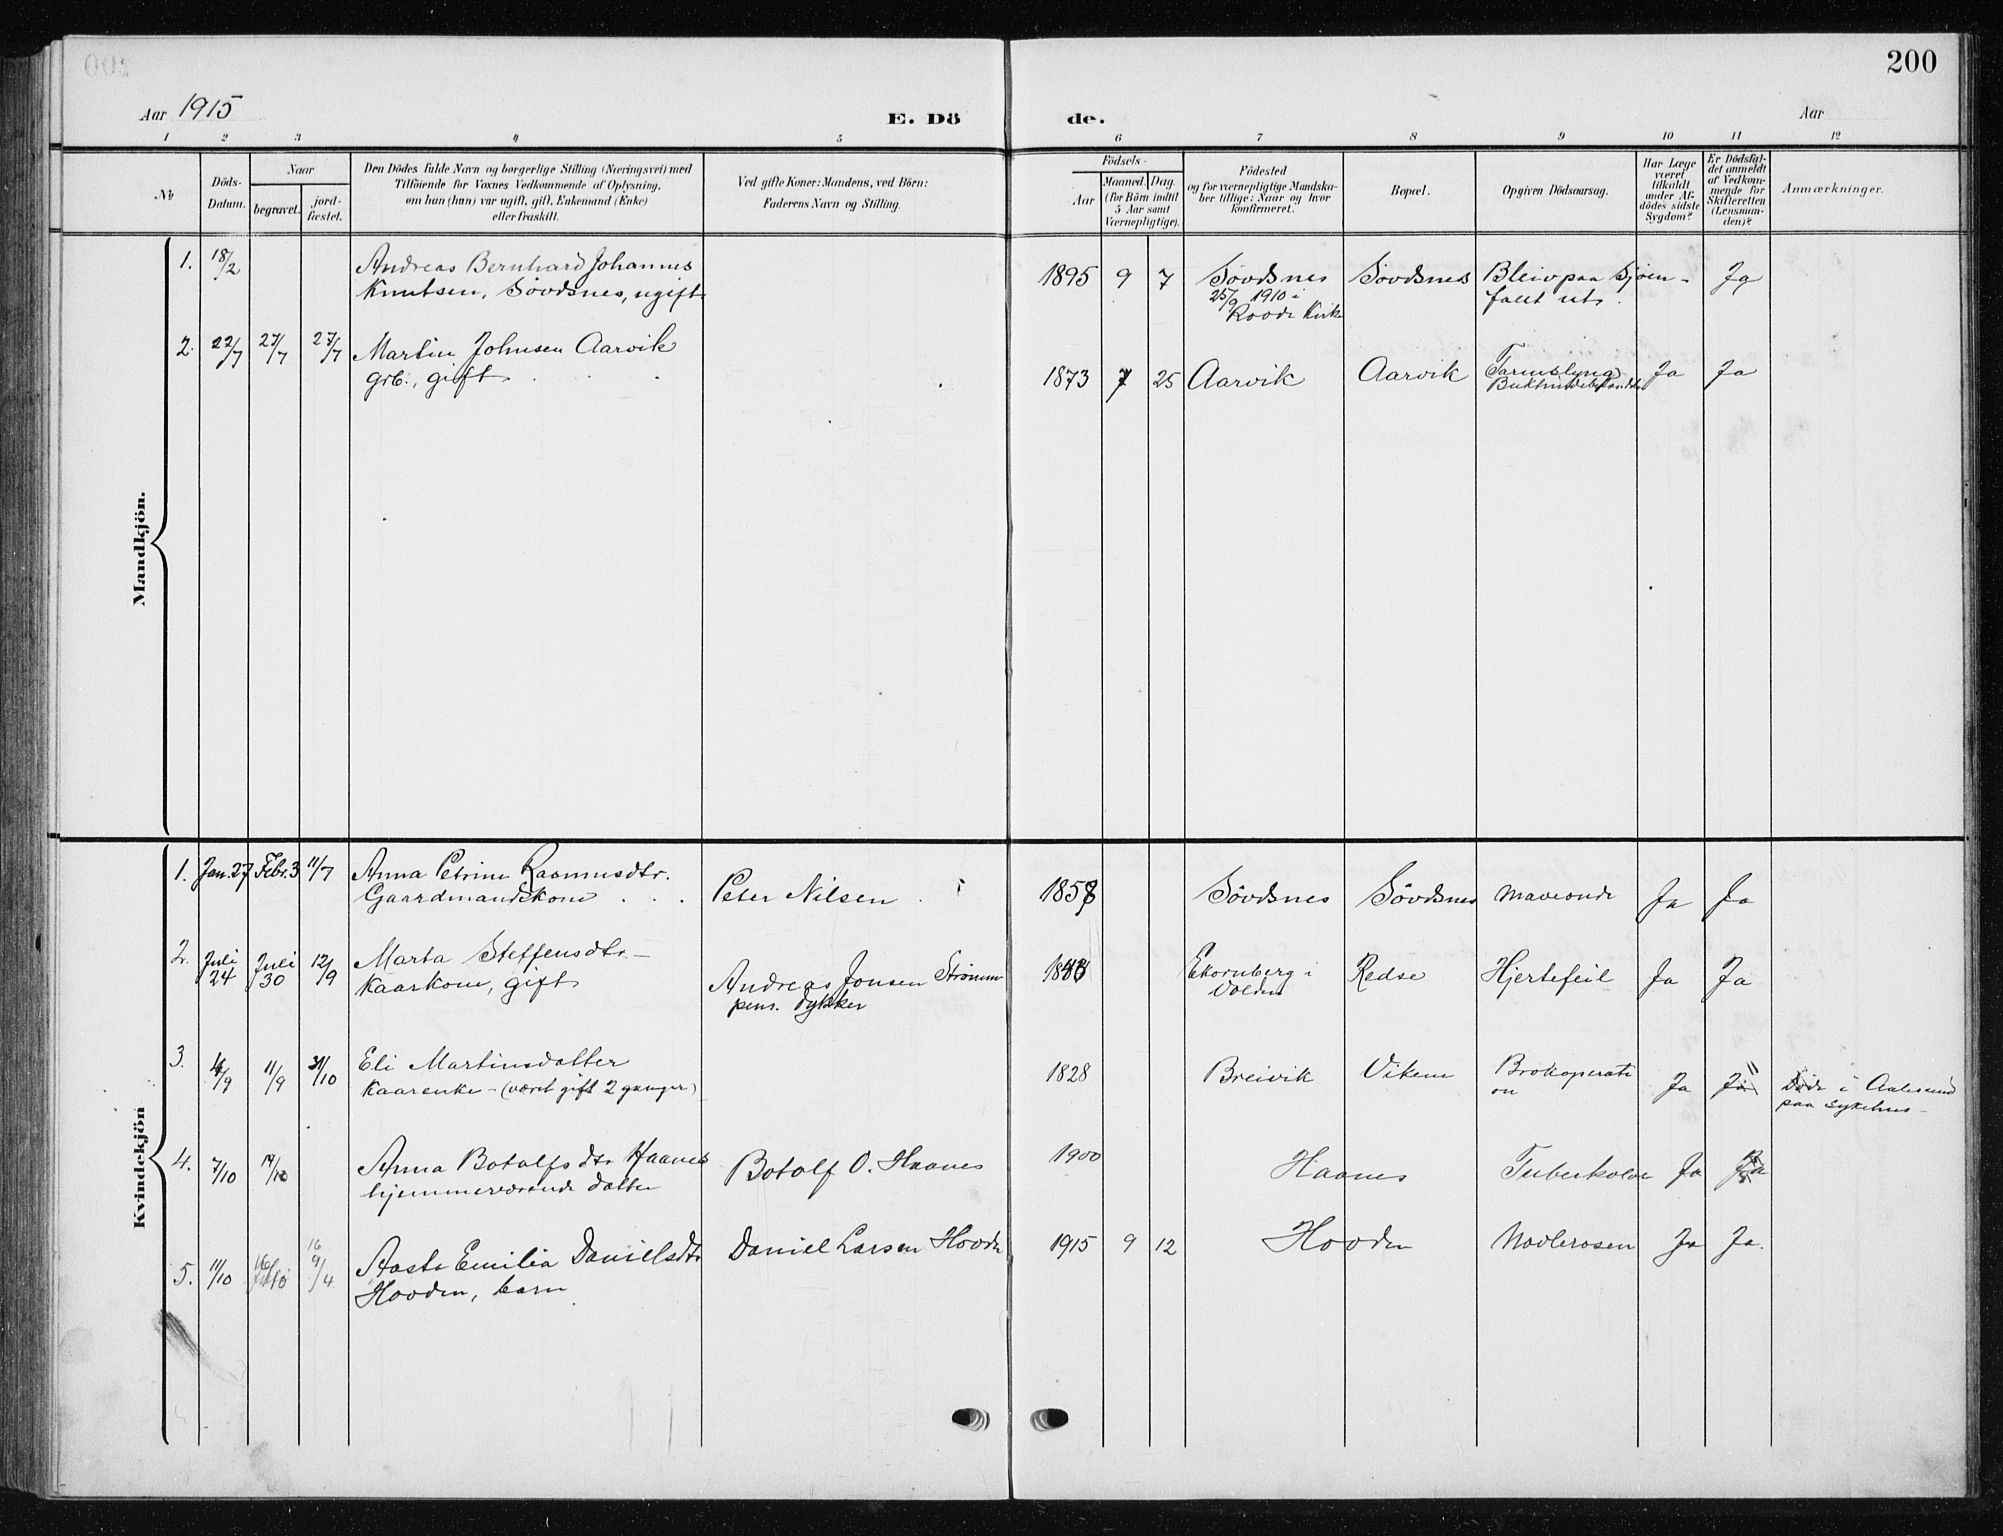 200
Aar 1915
E. Dö
de.
Aar
1 2 3 4 5 6 7 8 9 10 11 12
No
Döds-
Datum.
Naar
begravet.
jord-
fæstet.
Den Dödes fulde Navn og borgerlige Stilling (Næringsvei) med
Tilföiende for Voxnes Vedkommende af Oplysning,
om han (hun) var ugift, gift, Enkemand (Enke)
eller fraskilt.
Ved gifte Koner: Mandens, ved Börn:
Faderens Navn og Stilling.
Födsels-
Aar
Maaned. Dag.
(for Börn indtil
5 Aar samt
Værnepligtige).
Födested
og for værnepligtige Mandska-
ber tillige: Naar og hvor
konfirmeret.
Bopæl.
Opgiven Dödsaarsag.
Har Læge
været
tilkaldt
under Af-
dödes sidste
Sygdom?
Er Dödsfal-
det anmeldt
af Vedkom-
mende for
Skifteretten
(Lensman-
den)?
Anmærkninger.
Mandkjön.
1. 18/2 Andreas Bernhard Johannes
Knutsen, Sövdsnes, ugift
1895 9 7 Sövdsnes Sövdsnes Bleiv paa Sjöen - Ja
25/9 1910 i
Rovde Kirke
fallt ut.
2. 22/7 27/7 27/7 Martin Johnsen Aarvik
grb., gift
1873 7 25 Aarvik Aarvik Tarmslyng Ja Ja
Kvindekjön
1. Jan. 27 Febr. 3 11/7 Anna Petrine Rasmusdtr.
Gaardmandskone Peter Nilsen
1858 Sövdsnes Sövdsnes Maveonde Ja Ja
2. Juli 24 Juli 30 12/9 Marta Steffensdtr. -
Kaarkone, gift
Andreas Jonsen Strømm
pens. Dykker
Ekornberg i
Volden
Redse Hjertefeil Ja Ja
3. 4/9 11/9 31/10 Eli Martinsdatter
Kaarenke - (været gift 2 ganger)
1828 Breivik Vikene Brokoperati
on
Ja Ja Døde i Aalesund
paa sykehus -
4. 7/10 14/10 Anna Botolfsdtr Haanes
hjemmeværende datter
Botolf O. Haanes
1900 Haanes Tuberkolose Ja Ja
5. 11/10 16/10 Aasta Emilia Danielsdtr
Hovden, barn
Daniel Larsen Hovden
1915 9 12 Hovden Navlerosen Ja Ja.